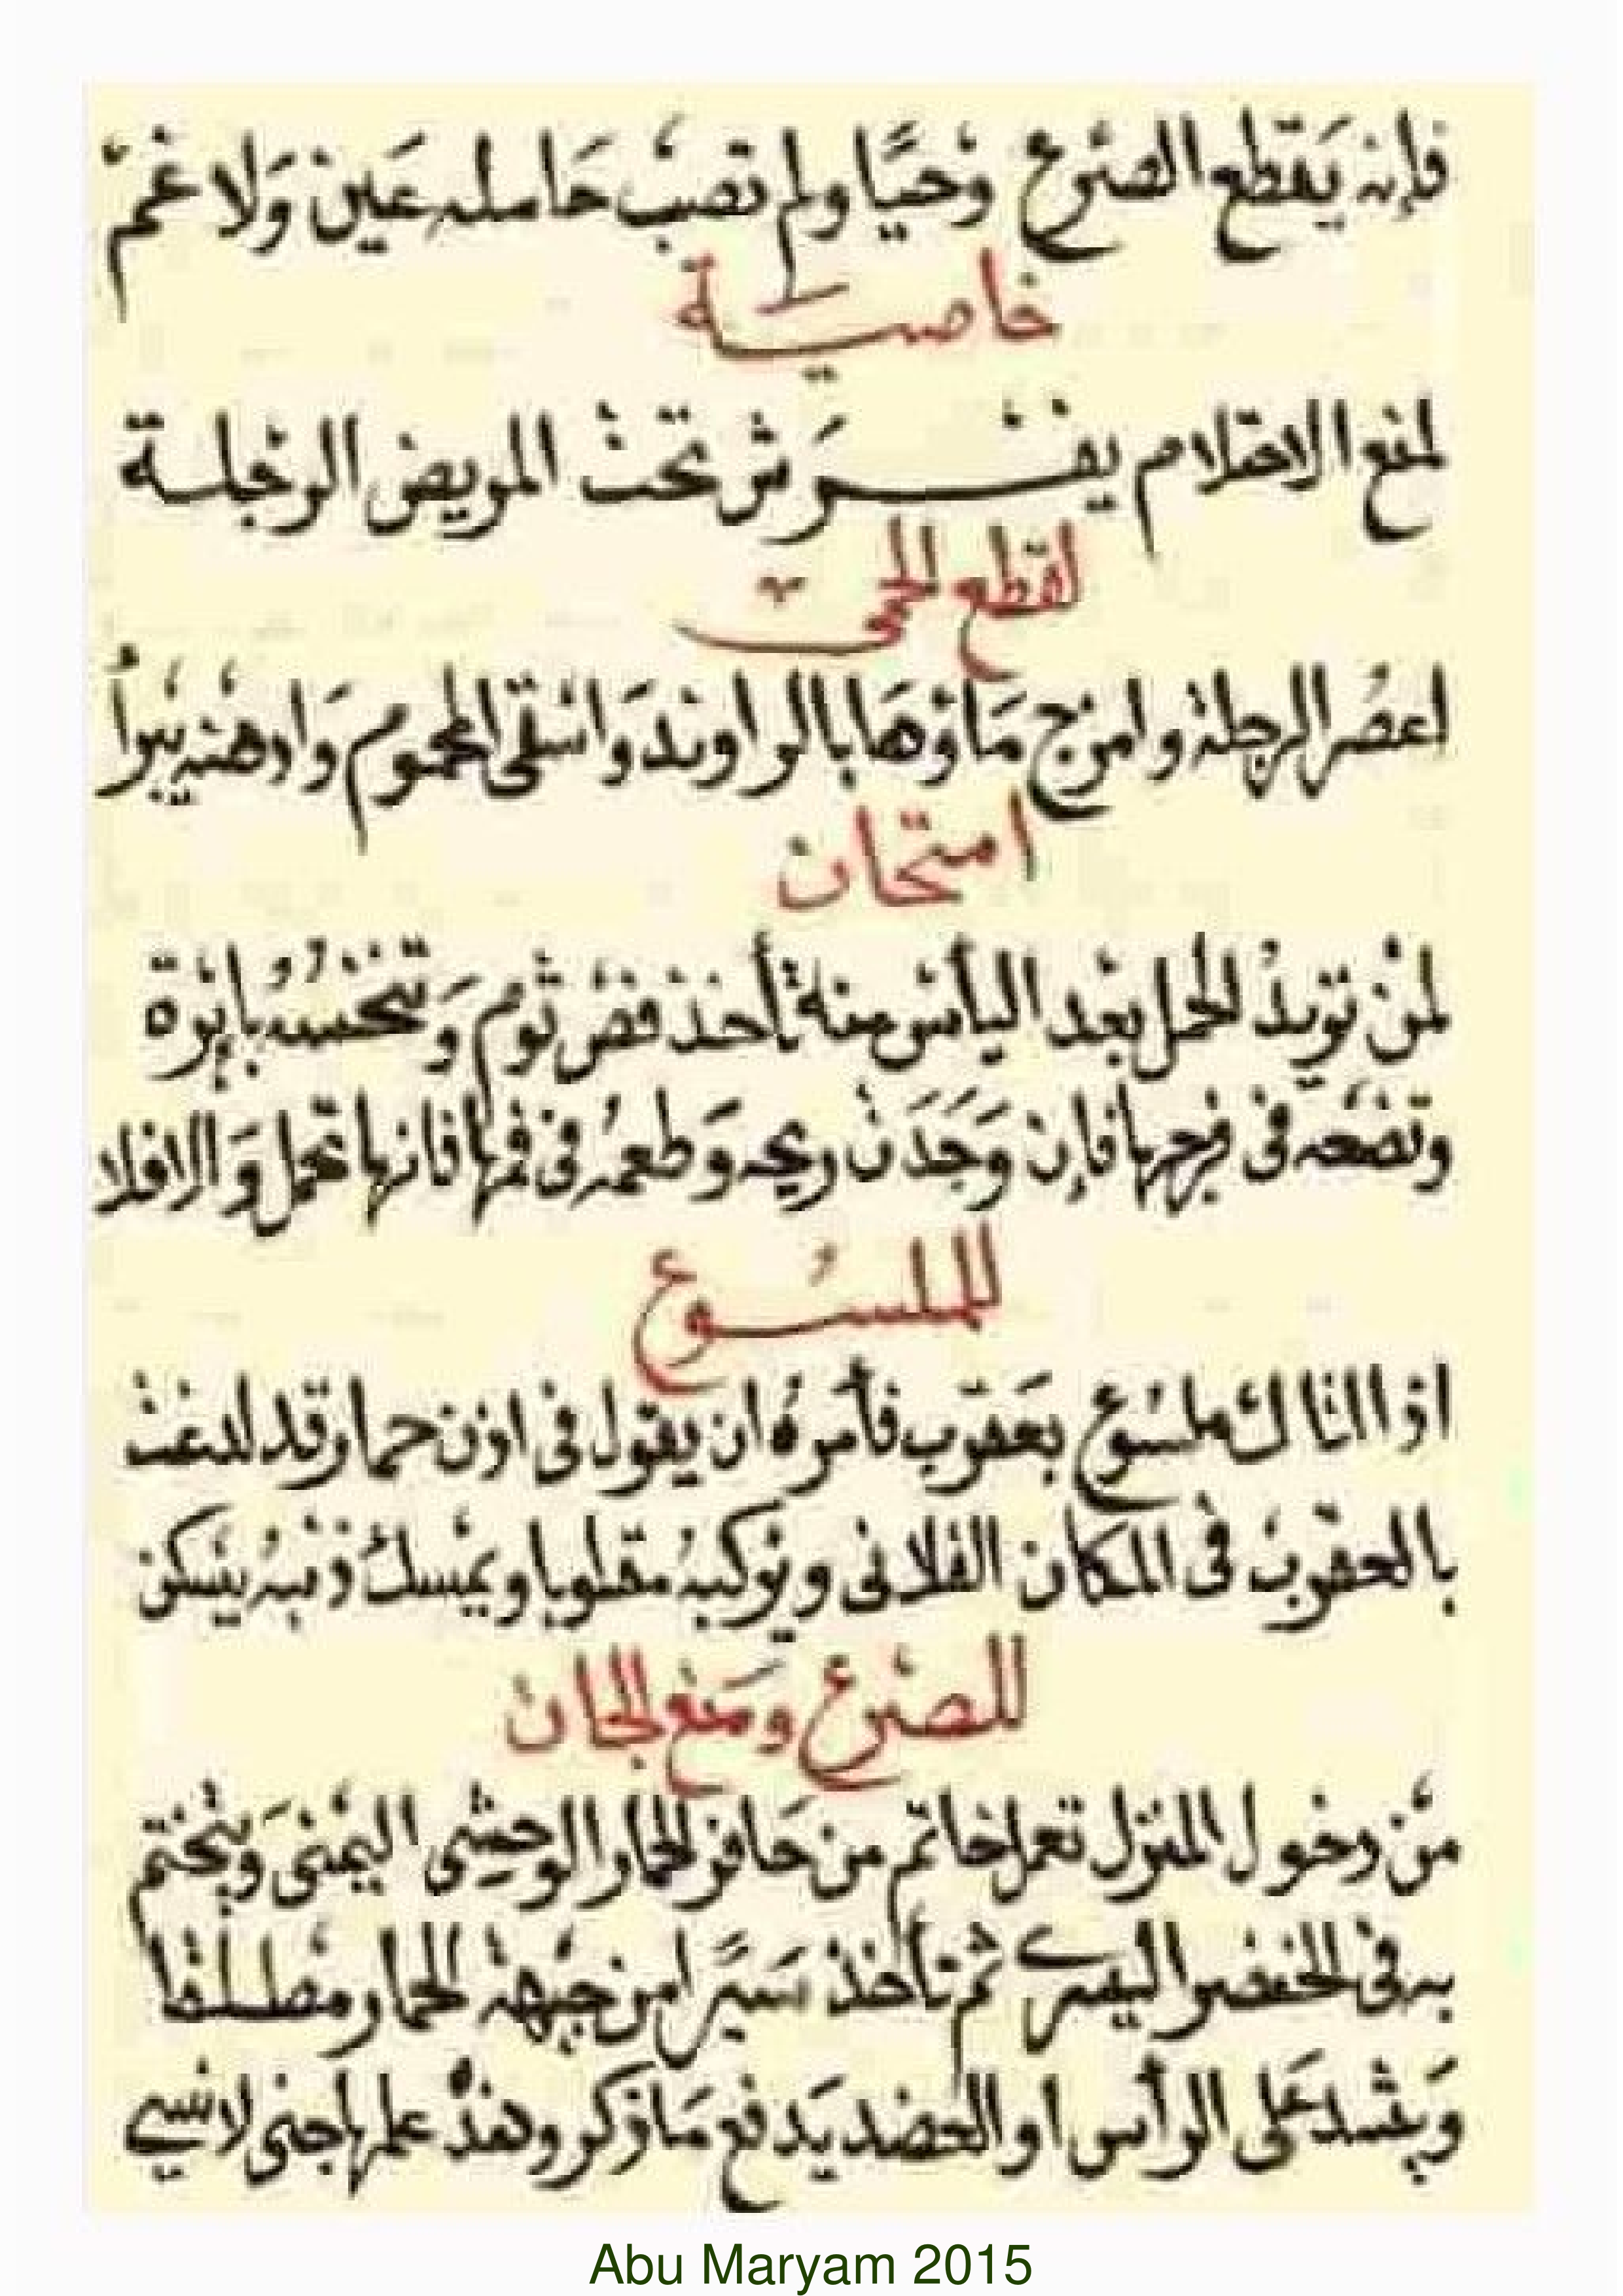 فإنه يَقطع الصّرع وحيًّا ولم تصب حَامله عَين وَلا غم
خاصية
لمنع الاحتلام يفرش تحت المريض الرجلة
لقطع الحمى
اعصر الرجلة وامزج مَاؤهَا بالراوند وَاسْقى المحموم وَادهنه يبرأ
امتحان
لمنْ تريدُ الحمل بعْد اليأس منه تأخذ فصّ ثوم وَتنخسه بإبْرة
وتضعه فى فرجها فإن وَجَدَت ريحه وَطعمه فى فمها فانها تحمل وَالا فلا
للملسوع
اذا اتاك ملسُوع بعَقرب فأمرهُ ان يقول فى اذن حمار قد لدغت
بالعقرب فى المكان الفلانى ويركبه مقلوبا ويمسك ذنبه يسكن
للصرع ومَنع الجان
من دخول المنزل تعمل خاتم من حَافر الحمار الوحشى اليمنى وَيتختم
به فى الخنصر اليسرى ثم تأخذ سَيرًا من جبهة الحمار مطلقا
وَيشد عَلى الرأس او العضد يَدفع مَا ذكر وهذه علمها جنى لانسي
Abu Maryam 2015